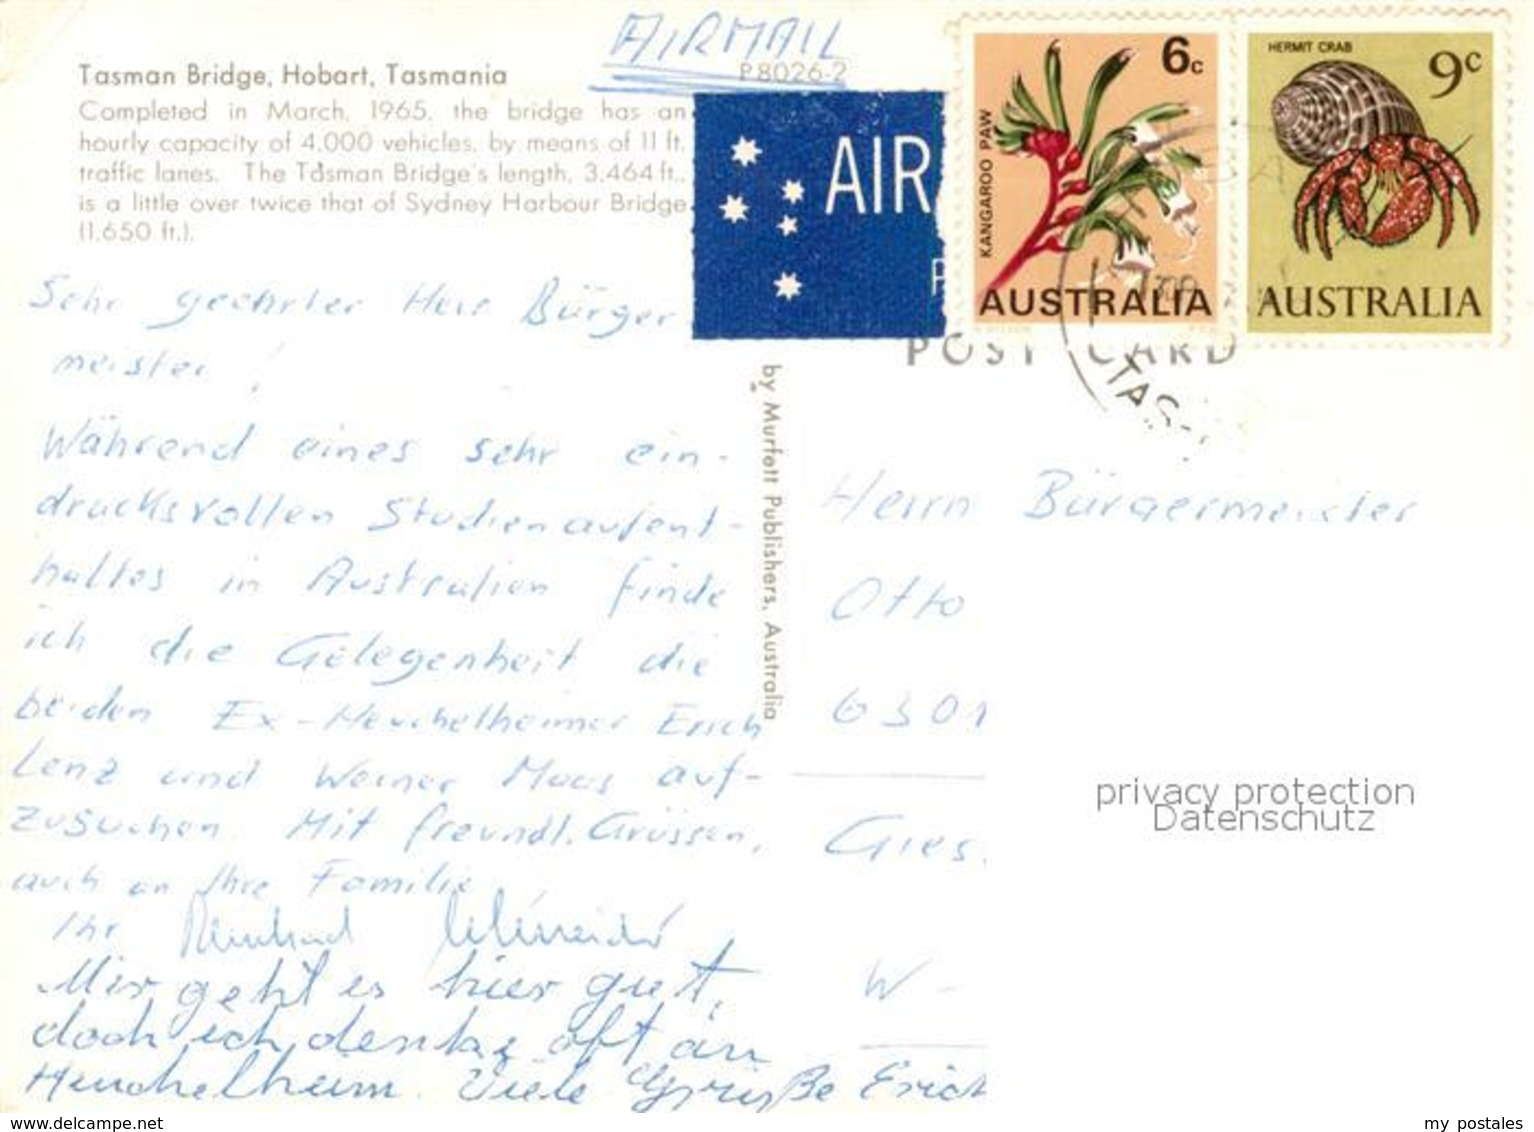 AIRMAIL
P8026-2
Tasman Bridge, Hobart, Tasmania
Completed in March, 1965, the bridge has an
hourly capacity of 4,000 vehicles, by means of 11 ft.
traffic lanes. The Tasman Bridge's length, 3,464 ft.,
is a little over twice that of Sydney Harbour Bridge
(1,650 ft.).
AIR
KANGAROO PAW
6c
AUSTRALIA
HERMIT CRAB
9c
AUSTRALIA
POST CARD
TAS
by Murfett Publishers, Australia
Sehr geehrter Herr Bürger
meister!
Während eines sehr ein-
drucksvollen Studienaufent-
haltes in Australien finde
ich die Gelegenheit die
beiden Ex-Heuchelheimer Erich
Lenz und Werner Moos auf-
zusuchen. Mit freundl. Grüssen,
auch an Ihre Familie
Ihr Reinhard Schneider
Mir geht es hier gut,
doch ich denke oft an
Heuchelheim. Viele Grüße Erich
Herrn Bürgermeister
Otto
6301
Gies.
W-
privacy protection
Datenschutz
www.delcampe.net
my postales